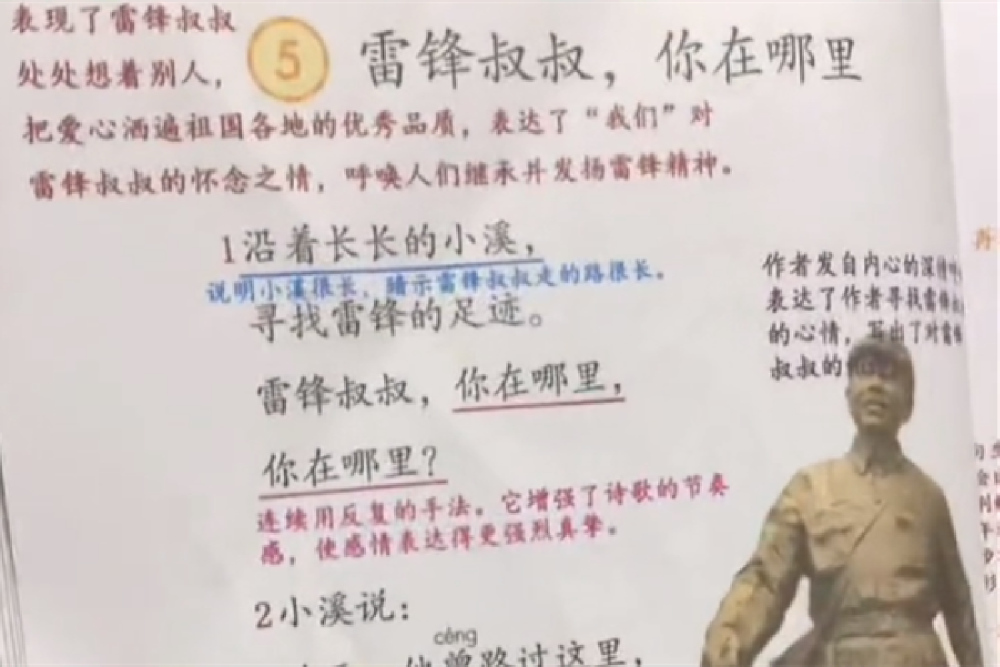 表现了雷锋叔叔
处处想着别人，
5 雷锋叔叔，你在哪里
把爱心洒遍祖国各地的优秀品质，表达了“我们”对
雷锋叔叔的怀念之情，呼唤人们继承并发扬雷锋精神。
1沿着长长的小溪，
说明小溪很长，暗示雷锋叔叔走的路很长。
寻找雷锋的足迹。
雷锋叔叔，你在哪里，
你在哪里？
连续用反复的手法。它增强了诗歌的节奏
感，使感情表达得更强烈真挚。
作者发自内心的深情呼
表达了作者寻找雷锋
的心情，写出了对雷锋
叔叔的
2小溪说：
céng
他曾路过这里，